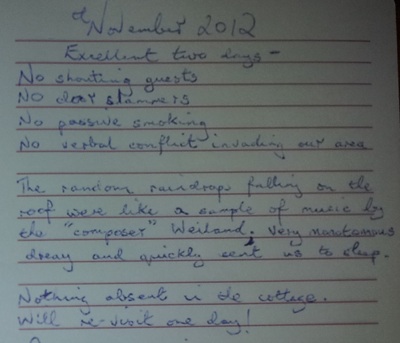 of
November 2012
Excellent two days -
No shouting guests
No door slammers
No passive smoking
No verbal conflict invading our area
The random raindrops falling on the
roof were like a sample of music by
the "composer" Weiland. Very monotonous
dreay and quickly sent us to sleep.
Nothing absent in the cottage.
Will re-visit one day!